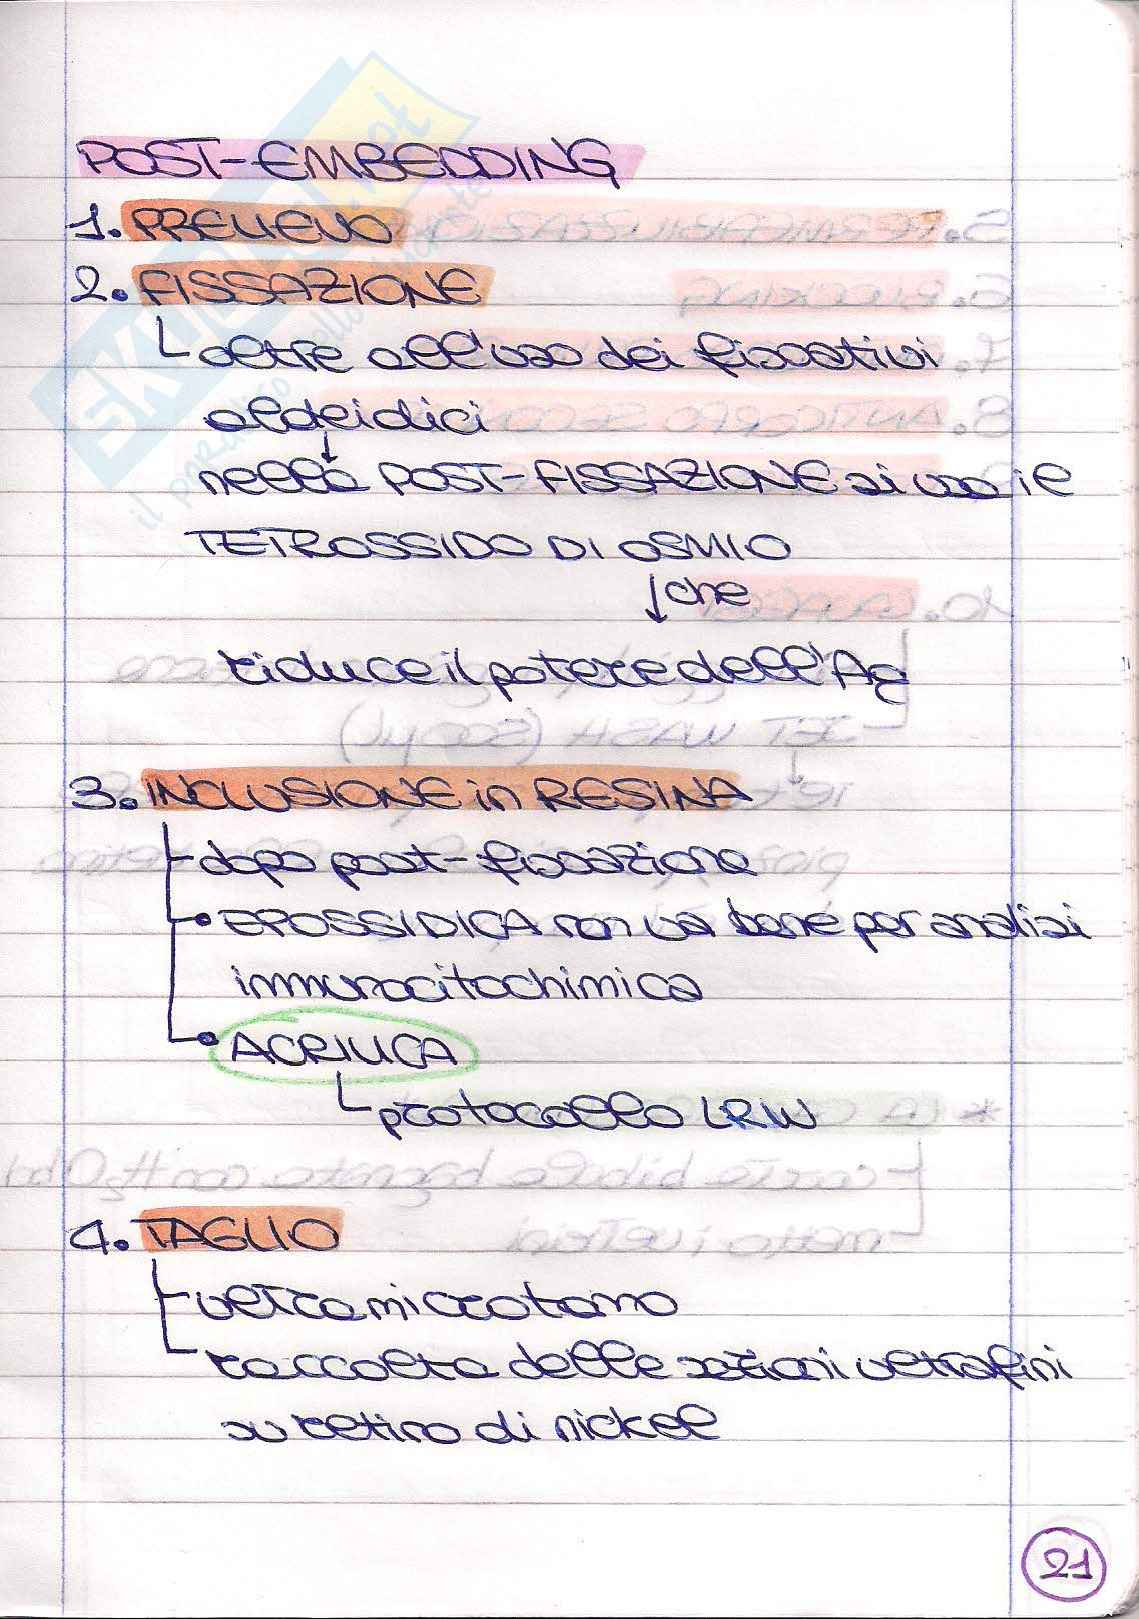 POST-EMBEDDING
1. PRELIEVO
2. FISSAZIONE
oltre all'uso dei fissativi
aldeidici
nella POST-FISSAZIONE si usa il
TETROSSIDO DI OSMIO
che
riduce il potere dell'Ag
3. INCLUSIONE in RESINA
dopo post-fissazione
EPOSSIDICA non va bene per analisi
immunocitochimica
ACRILICA
protocollo LRW
4. TAGLIO
ultramicrotomo
raccolta delle sezioni ultrafini
su retino di nickel
21